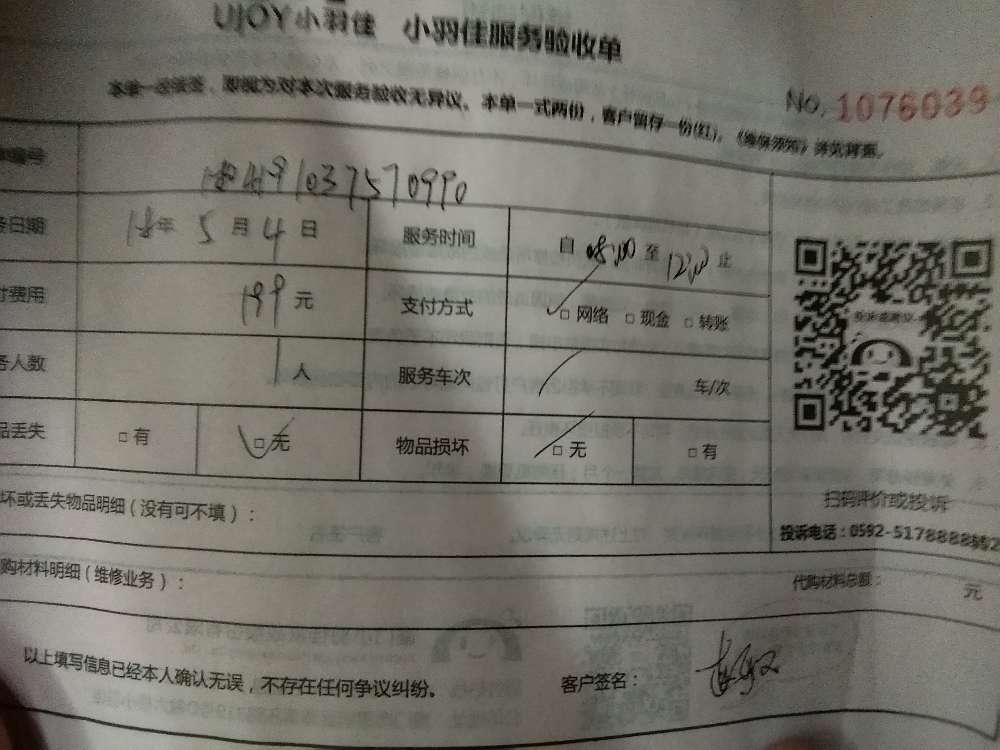 UJOY小羽佳 小羽佳服务验收单
本单一经签签，即视为对本次服务验收无异议。本单一式两份，客户留存一份(红)。《维保须知》详见背面。
No. 1076039
编号 037570990
日期 18年 5月 4日 服务时间 自 08:00 至 12:00 止
费用 199元 支付方式 ✓□ 网络 □ 现金 □ 转账
人数 1人 服务车次 / 车/次
品丢失 □ 有 ✓□ 无 物品损坏 ✓□ 无 □ 有
扫码评价或投诉
坏或丢失物品明细（没有可不填）：
投诉电话：0592-5178888转2
购材料明细（维修业务）： 代购材料总额： 元
以上填写信息已经本人确认无误，不存在任何争议纠纷。 客户签名：